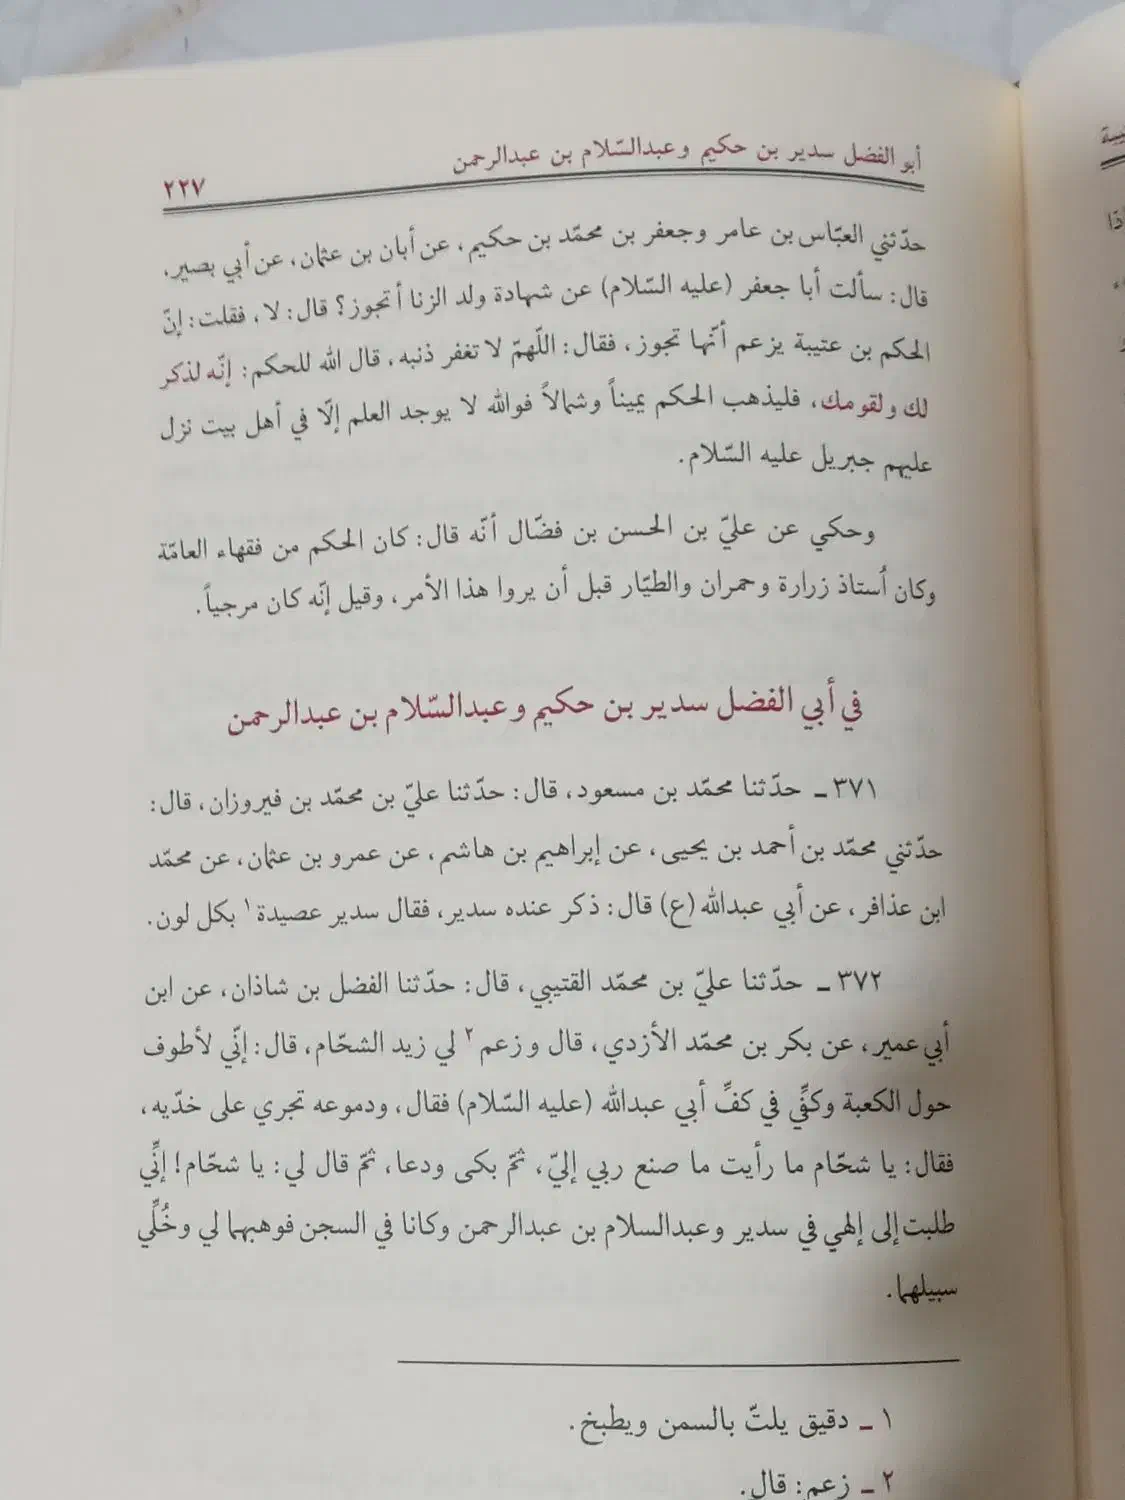 أبو الفضل سدير بن حكيم وعبدالسّلام بن عبدالرحمن
٢٢٧
حدّثني العبّاس بن عامر وجعفر بن محمّد بن حكيم، عن أبان بن عثمان، عن أبي بصير،
قال: سألت أبا جعفر (عليه السّلام) عن شهادة ولد الزنا أتجوز؟ قال: لا، فقلت: إنّ
الحكم بن عتيبة يزعم أنّها تجوز، فقال: اللّهمّ لا تغفر ذنبه، قال الله للحكم: إنّه لذكر
لك ولقومك، فليذهب الحكم يميناً وشمالاً فوالله لا يوجد العلم إلّا في أهل بيت نزل
عليهم جبريل عليه السّلام.
وحكي عن عليّ بن الحسن بن فضّال أنّه قال: كان الحكم من فقهاء العامّة
وكان أُستاذ زرارة وحمران والطيّار قبل أن يروا هذا الأمر، وقيل إنّه كان مرجياً.
في أبي الفضل سدير بن حكيم وعبدالسّلام بن عبدالرحمن
٣٧١ ـ حدّثنا محمّد بن مسعود، قال: حدّثنا عليّ بن محمّد بن فيروزان، قال:
حدّثني محمّد بن أحمد بن يحيى، عن إبراهيم بن هاشم، عن عمرو بن عثمان، عن محمّد
ابن عذافر، عن أبي عبدالله (ع) قال: ذكر عنده سدير، فقال سدير عصيدة ١ بكل لون.
٣٧٢ ـ حدّثنا عليّ بن محمّد القتيبي، قال: حدّثنا الفضل بن شاذان، عن ابن
أبي عمير، عن بكر بن محمّد الأزدي، قال وزعم ٢ لي زيد الشحّام، قال: إنّي لأطوف
حول الكعبة وكفّي في كفِّ أبي عبدالله (عليه السّلام) فقال، ودموعه تجري على خدّيه،
فقال: يا شحّام ما رأيت ما صنع ربي إليّ، ثمّ بكى ودعا، ثمّ قال لي: يا شحّام! إنِّي
طلبت إلى إلهي في سدير وعبدالسلام بن عبدالرحمن وكانا في السجن فوهبهما لي وخُلِّي
سبيلهما.
١ ـ دقيق يلتّ بالسمن ويطبخ.
٢ ـ زعم: قال.